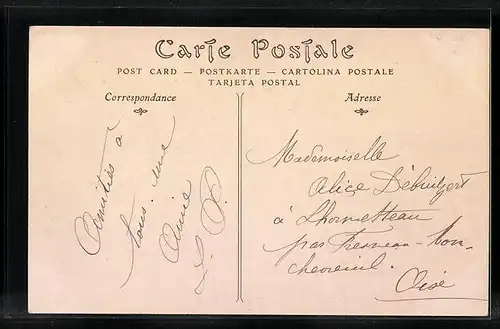 Carte Postale
POST CARD — POSTKARTE — CARTOLINA POSTALE
TARJETA POSTAL
Correspondance
Adresse
Amitiés à
tous. une
Amie
L. P.
Mademoiselle
Alice
à
par Fresneau-Mon-
chevreuil.
Oise